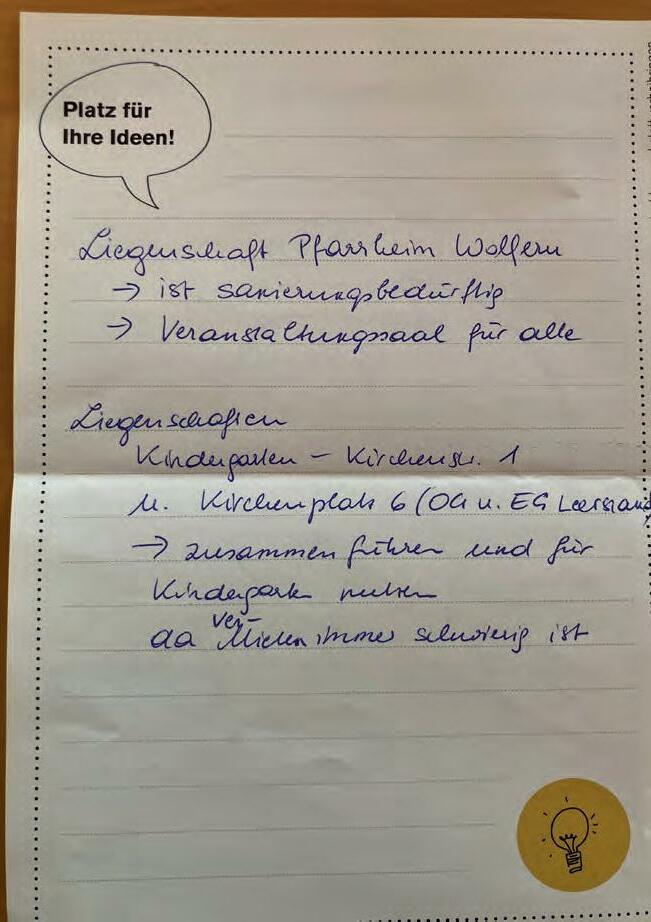 Platz für
Ihre Ideen!
Liegenschaft Pfarrheim Wolfern
→ ist sanierungsbedürftig
→ Veranstaltungssaal für alle
Liegenschaften
Kindergarten – Kirchenstr. 1
u. Kirchenplatz 6 (OG u. EG Leerstand)
→ zusammenführen und für
Kindergarten nutzen
da ver-Mieten immer schwierig ist